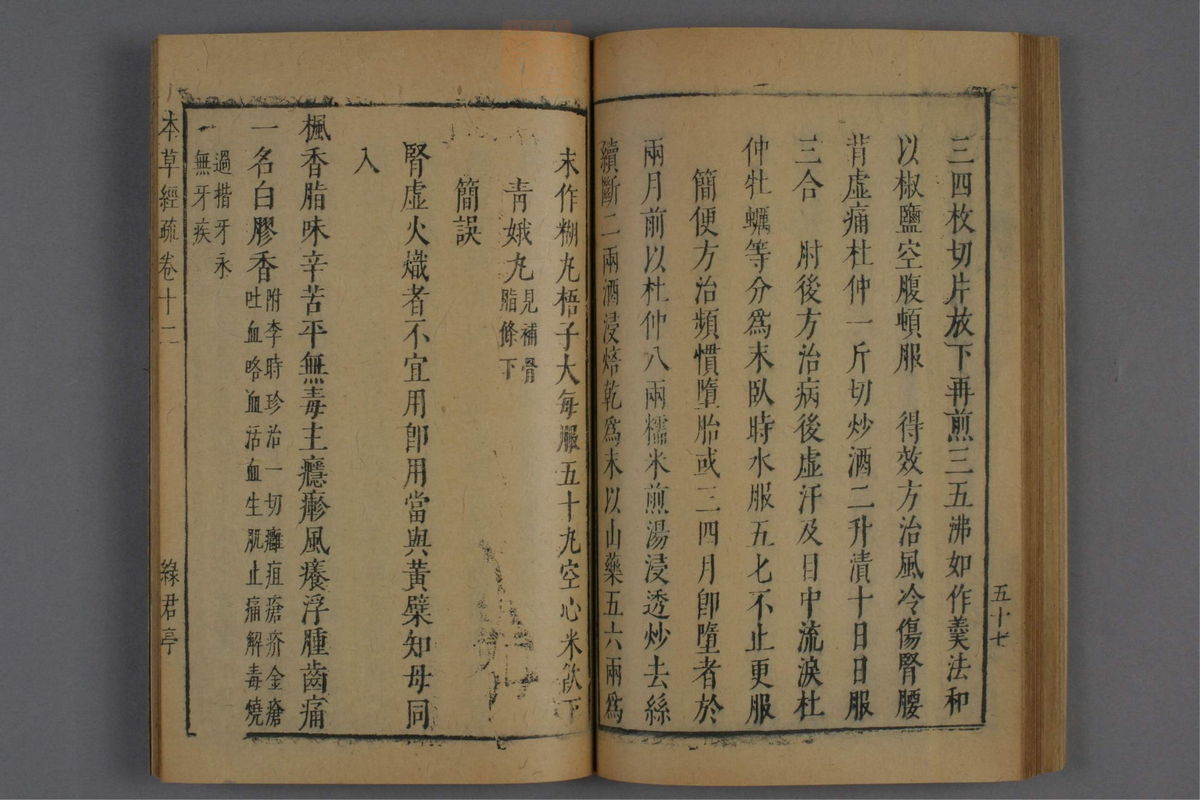 三四枚切片放下再煎三五沸如作羹法和
以椒鹽空腹頓服　得效方治風冷傷腎腰
背虛痛杜仲一斤切炒酒二升漬十日日服
三合　肘後方治病後虛汗及日中流淚杜
仲牡蠣等分爲末臥時水服五匕不止更服
簡便方治頻慣墮胎或三四月卽墮者於
兩月前以杜仲八兩糯米煎湯浸透炒去絲
續斷二兩酒浸焙乾爲末以山藥五六兩爲
五十七
末作糊丸梧子大每服五十丸空心米飲下
青娥丸見補骨脂條下
簡誤
腎虛火熾者不宜用卽用當與黃檗知母同
入
楓香脂味辛苦平無毒主癮瘮風癢浮腫齒痛
一名白膠香附李時珍治一切癰疽瘡疥金瘡吐血咯血活血生肌止痛解毒燒
過揩牙永無牙疾
本草經疏卷十二　綠君亭